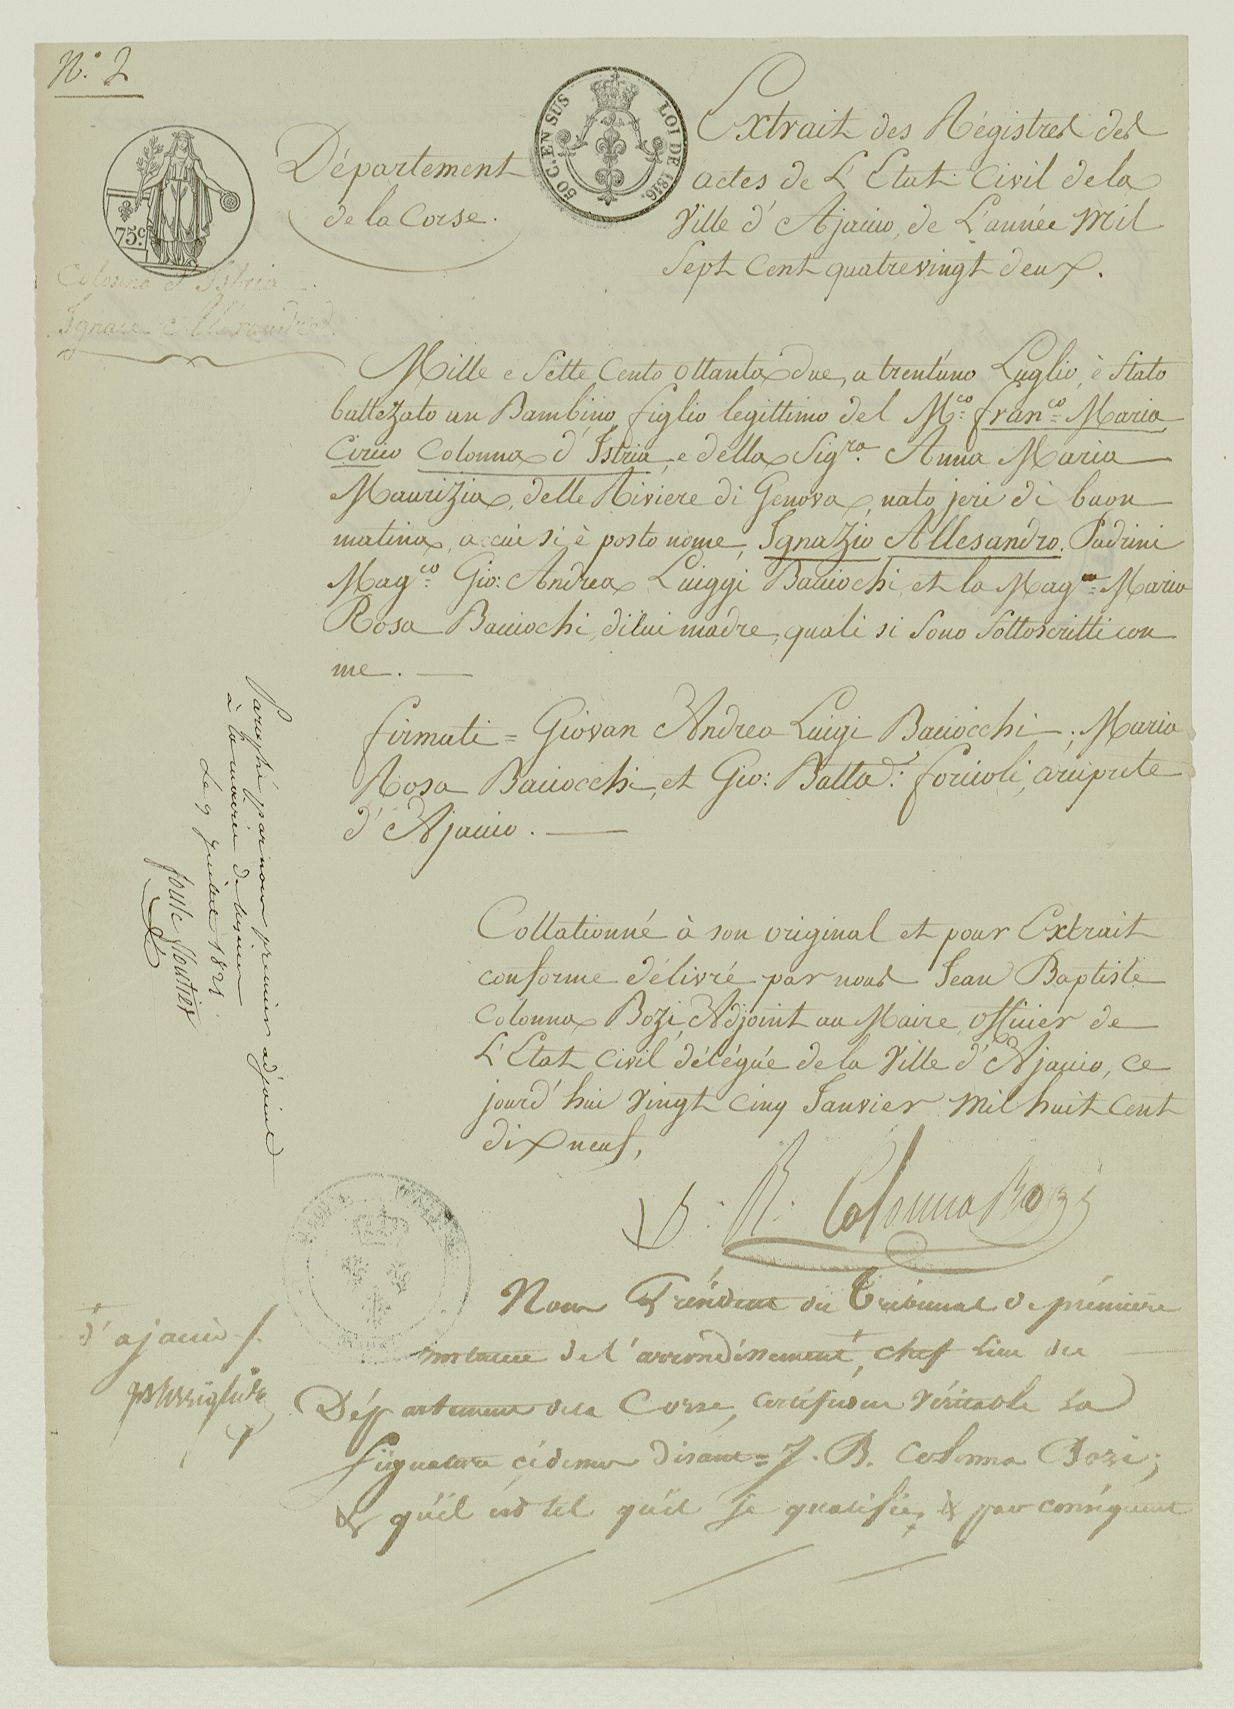 N.° 2
50 C. EN SUS
LOI DE 1816.
75 c
Département
de la Corse.
Extrait des Régistres des
actes de L'Etat Civil de la
Ville d'Ajaccio, de L'année Mil
Sept Cent quatrevingt deux.
Colonna d'Istria
Ignace Alexandre
Mille e Sette Cento Ottanta due, a trent'uno Luglio, è Stato
battezato un Bambino figlio legittimo del M.co Fran.co Maria
Cirico Colonna d'Istria, e della Sig.ra Anna Maria
Maurizia, delle Riviere di Genova, nato jeri di buon
matina, a cui si è posto nome, Ignazio Allesandro. Padrini
Mag.co Gio: Andrea Luiggi Baciochi, et la Mag.ca Maria
Rosa Baciochi, di lui madre, quali si Sono Sottoscritti con
me.
firmati = Giovan Andrea Luigi Baciocchi; Maria
Rosa Baciocchi, et Gio: Batta: Forcioli, arciprete
d'Ajaccio.
Paraphé par nous premier adjoint
à la mairie de
Le 9 juillet 1821
Collationné à son original et pour Extrait
conforme délivré par nous Jean Baptiste
Colonna Bozi, Adjoint au Maire, Officier de
L'Etat Civil délégué de la Ville d'Ajaccio, ce
jourd'hui Vingt Cinq Janvier Mil huit Cent
dix neuf,
J. B. Colonna Bozi
Nous Président du Tribunal de première
instance de l'arrondissement, chef lieu du
Département de la Corse, certifions véritable la
signature cidessus disant = J. B. Colonna Bozi;
& qu'il est tel qu'il se qualifie, & par conséquent
d'ajaccio